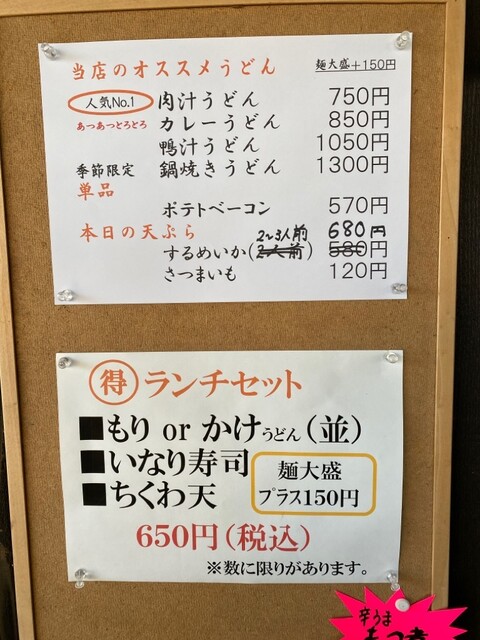 当店のオススメうどん 麺大盛+150円
人気No.1 肉汁うどん 750円
あつあつとろとろ カレーうどん 850円
鴨汁うどん 1050円
季節限定 鍋焼きうどん 1300円
単品
ポテトベーコン 570円
本日の天ぷら 2~3人前 680円
するめいか(2人前) 580円
さつまいも 120円
得 ランチセット
■もり or かけうどん(並)
■いなり寿司
■ちくわ天
麺大盛
プラス150円
650円(税込)
※数に限りがあります。
辛うま